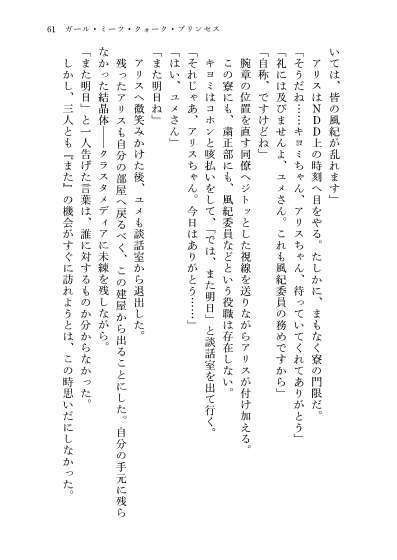 61　ガール・ミーツ・クォーク・プリンセス
いては、皆の風紀が乱れます」
　アリスはＮＤＤ上の時刻へ目をやる。たしかに、まもなく寮の門限だ。
「そうだね……キヨミちゃん、アリスちゃん、待っていてくれてありがとう」
「礼には及びませんよ、ユメさん。これも風紀委員の務めですから」
「自称、ですけどね」
　腕章の位置を直す同僚へジトッとした視線を送りながらアリスが付け加える。
　この寮にも、粛正部にも、風紀委員などという役職は存在しない。
　キヨミはコホンと咳払いをして、「では、また明日」と談話室を出て行く。
「それじゃあ、アリスちゃん。今日はありがとう……」
「はい、ユメさん」
「また明日ね」
　アリスへ微笑みかけた後、ユメも談話室から退出した。
　残ったアリスも自分の部屋へ戻るべく、この建屋から出ることにした。自分の手元に残ら
なかった結晶体――クラスタメディアに未練を残しながら。
「また明日」と一人告げた言葉は、誰に対するものか分からなかった。
　しかし、三人とも『また』の機会がすぐに訪れようとは、この時思いだにしなかった。